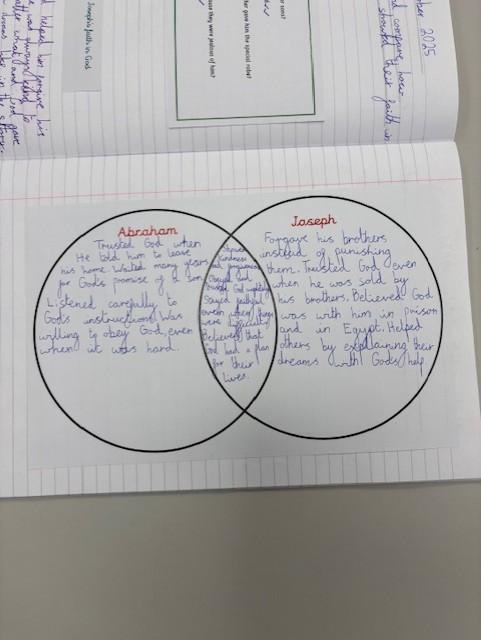 ber 2025
nd compare how
showed their faith in
or sons?
her gave him the special robe?
ause they were jealous of him?
Joseph's faith in God
d helped him forgive his
Abraham
Trusted God when
He told him to leave
his home. Waited many years
for God's promise of a son.
Listened carefully to
God's instructions. Was
willing to obey God, even
when it was hard.
Showed
kindness
and forgiveness
Obeyed God
God
Stayed faithful
even when things
were difficult.
Believed that
God had a plan
for their
lives.
Joseph
Forgave his brothers
instead of punishing
them. Trusted God even
when he was sold by
his brothers. Believed God
was with him in prison
and in Egypt. Helped
others by explaining their
dreams with God's help